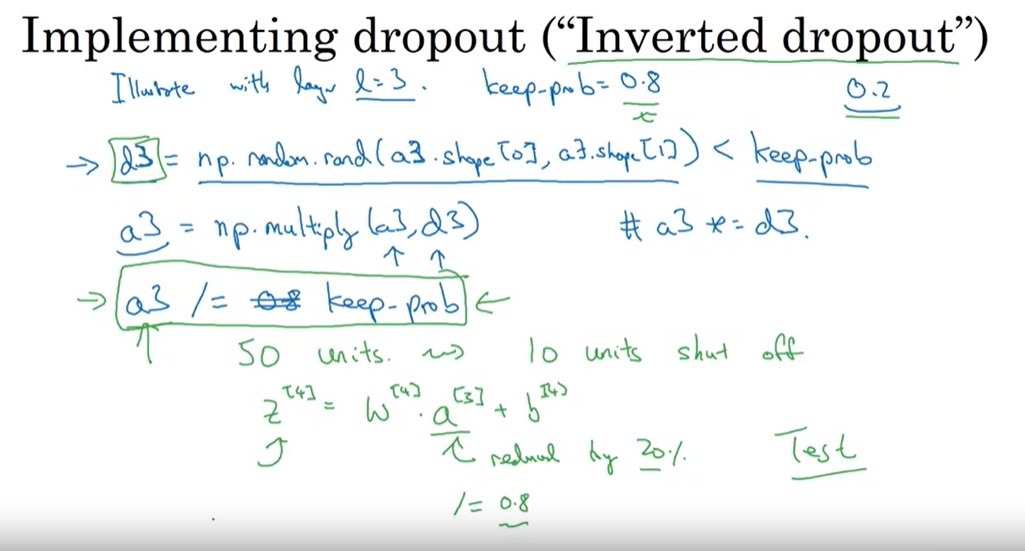 Implementing dropout (“Inverted dropout”)
Illustrate with layer l=3. keep-prob= 0.8 0.2
→ d3 = np.random.rand(a3.shape[0], a3.shape[1]) < keep-prob
a3 = np.multiply(a3, d3) # a3 *= d3.
→ a3 /= 0.8 keep-prob ←
50 units. ⇝ 10 units shut off
z^[4] = W^[4] · a^[3] + b^[4]
reduced by 20%. Test
/= 0.8